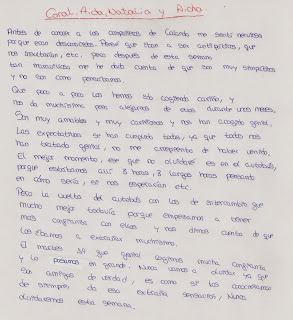 Coral, Aida, Natalia y Aicha
Antes de conocer a los compañeros de Calanda me sentí nerviosa
porque eran desconocidos. Pensé que iban a ser antipáticos, que
nos insultarían, etc, pero después de esta semana
tan maravillosa me he dado cuenta de que son muy simpáticos
y no son como pensábamos.
Que poco a poco los hemos ido cogiendo cariño, y
nos da muchísima pena alejarnos de ellos durante unos meses.
Son muy amables y muy cariñosos y nos han acogido genial.
Las expectativas se han cumplido todas, ya que todos nos
han tratado genial, no me arrepiento de haber venido.
El mejor momento, ese que no olvidaré es en el autobús,
porque estábamos allí 8 horas, 8 largas horas pensando
en cómo sería, si nos esperarían etc.
Pero la vuelta del autobús con los de intercambio fue
mucho mejor todavía porque empezamos a tener
más confianza con ellos y nos dimos cuenta de que
los íbamos a extrañar muchísimo.
El martes fue genial cogimos mucha confianza
y lo pasamos en grande. Nunca vamos a olvidar ya que
son amigos de verdad, es como si los conociéramos
de siempre, da esa extraña sensación, Nunca
olvidaremos esta semana.